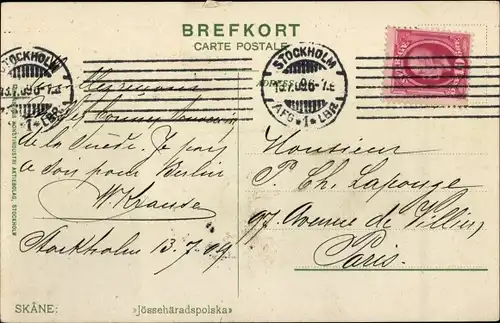 BREFKORT
CARTE POSTALE
STOCKHOLM
13.7.09 6-7 E
AFG *1* LBR.
STOCKHOLM
13.7.09 6-7 E
*1* LBR.
bon souvenir
de la Suède. Je pars
ce soir pour Berlin
W. Krause
Stockholm 13.7.09
Monsieur
P. Ch. Lapouge
97, Avenue de Villiers,
Paris.
AKTIEBOLAG, STOCKHOLM
SKÅNE:
»Jösseháradspolska»